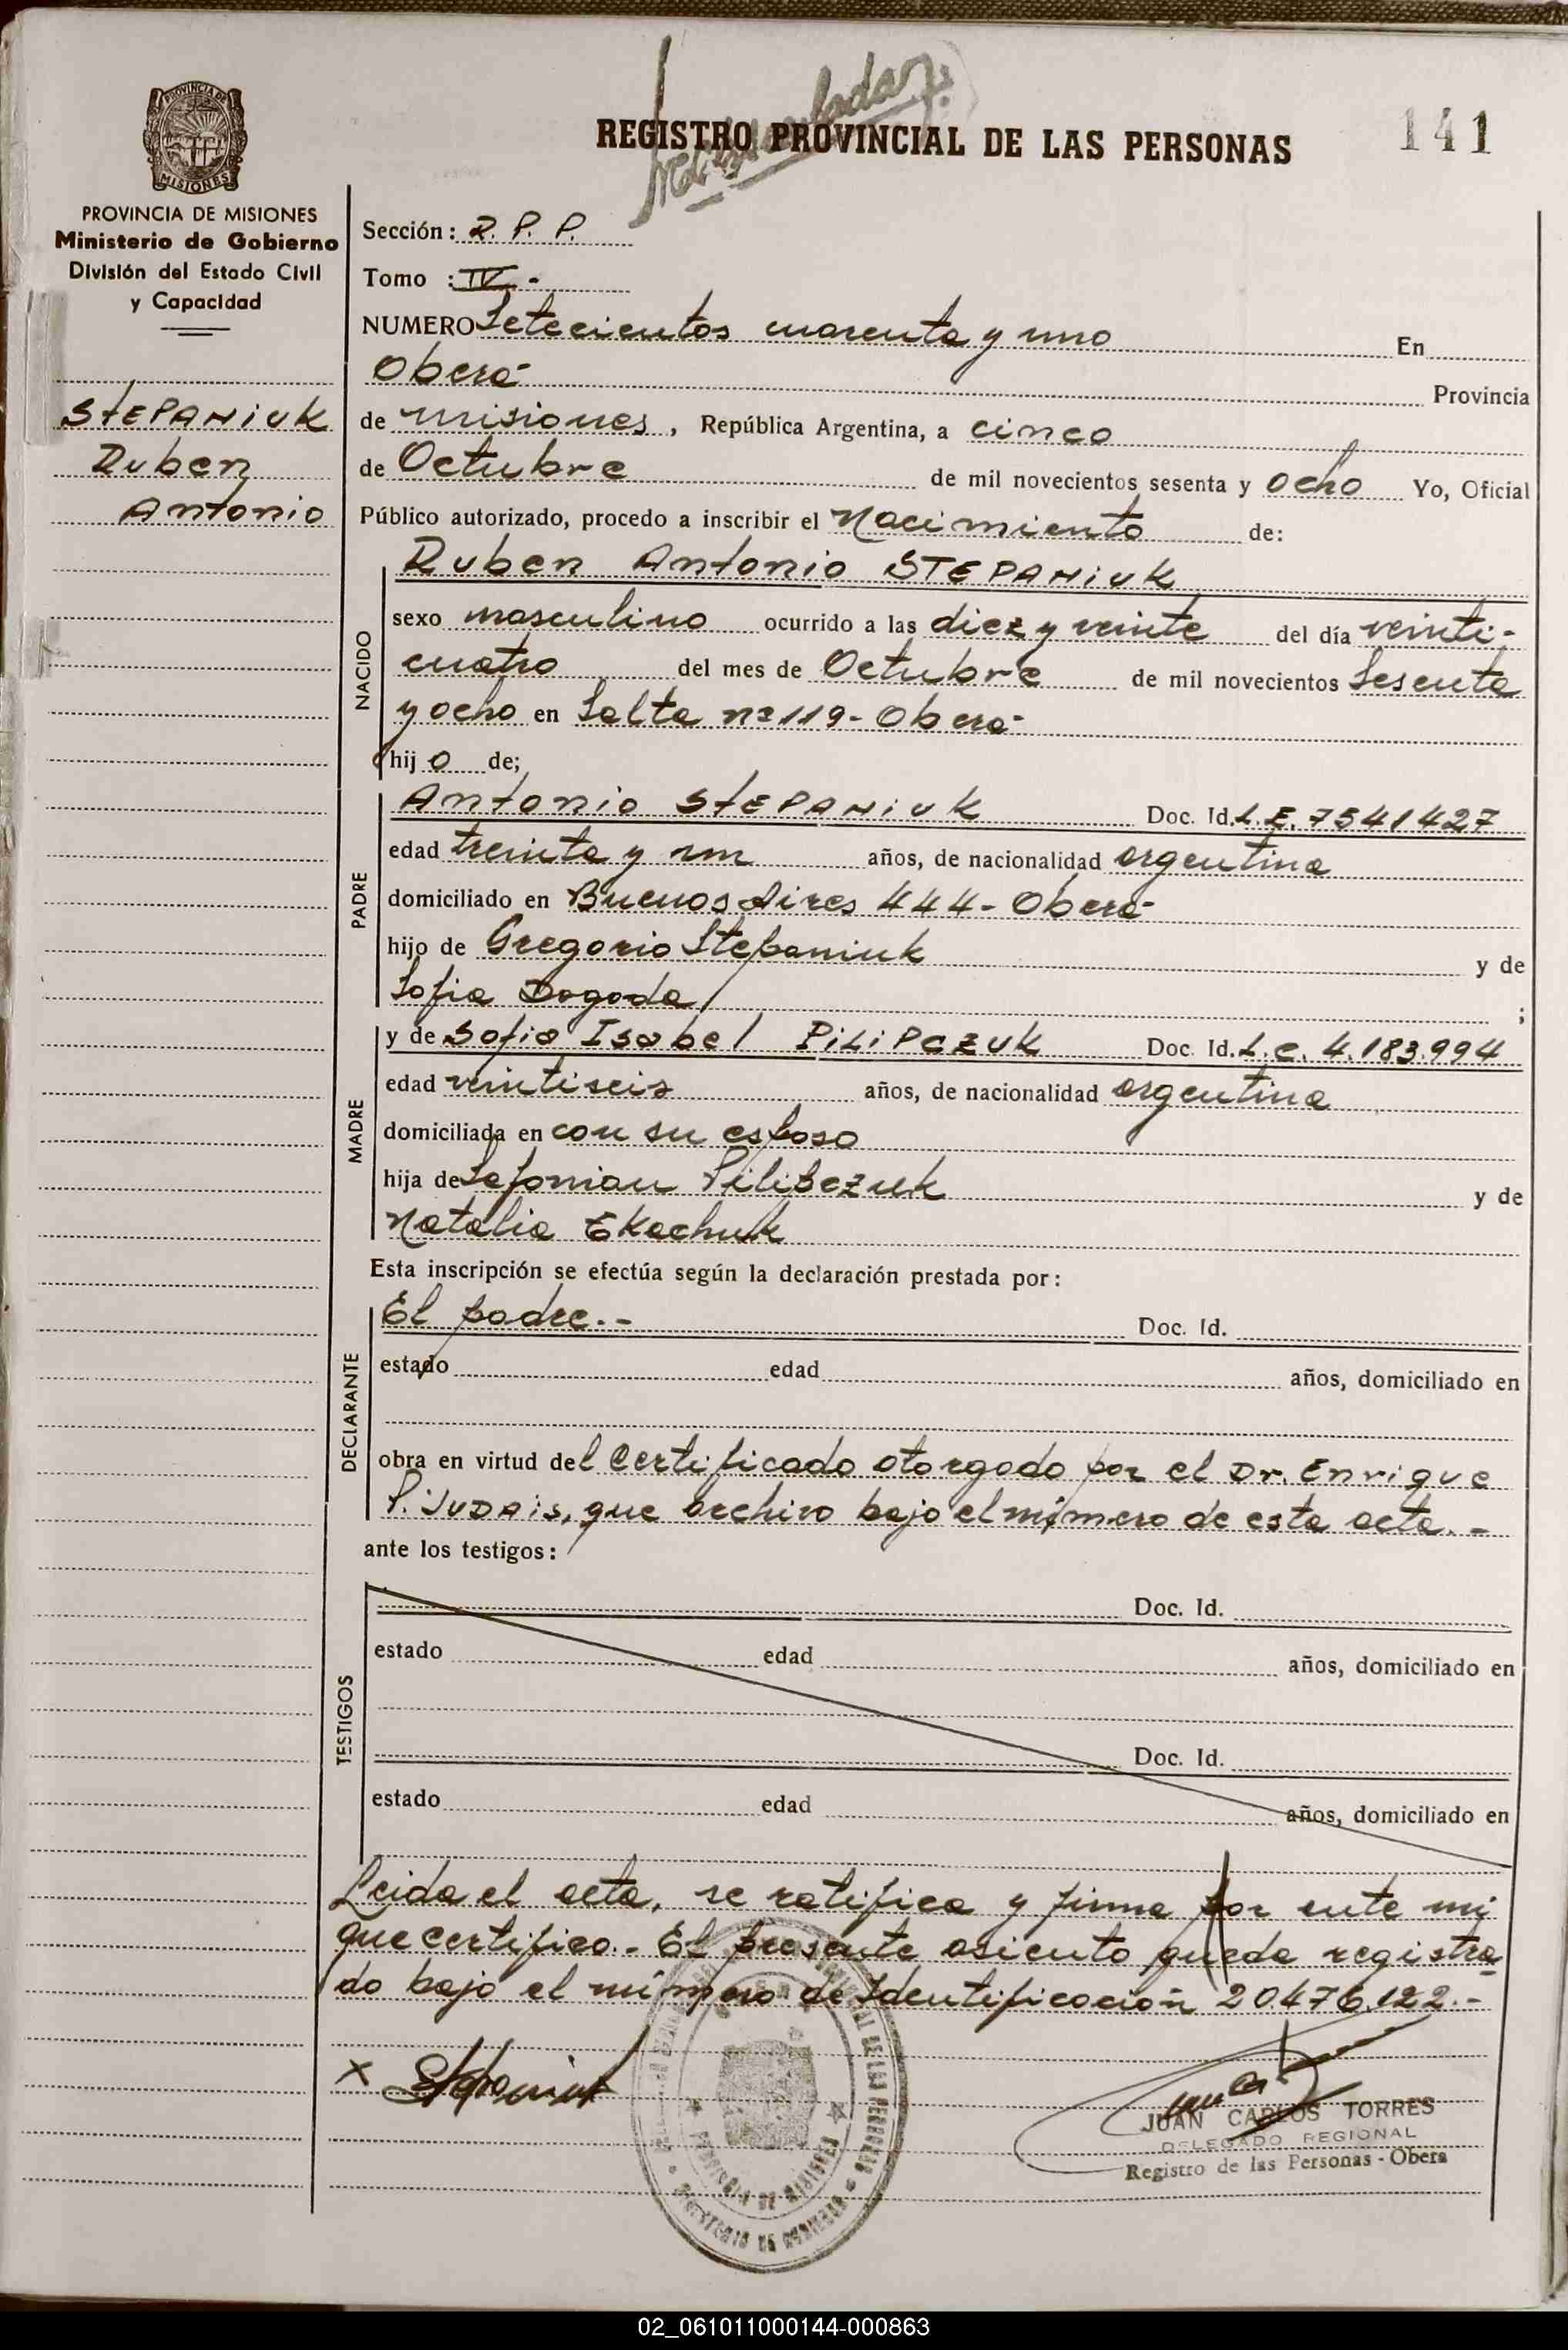 141
REGISTRO PROVINCIAL DE LAS PERSONAS
PROVINCIA DE MISIONES
PROVINCIA DE MISIONES
Ministerio de Gobierno
División del Estado Civil
y Capacidad
STEPANIUK
Ruben
Antonio
Sección: R. P. P.
Tomo : IV.-
NUMERO Setecientos cuarenta y uno En
Oberá Provincia
de Misiones, República Argentina, a cinco
de Octubre de mil novecientos sesenta y ocho Yo, Oficial
Público autorizado, procedo a inscribir el Nacimiento de:
NACIDO
Ruben Antonio STEPANIUK
sexo masculino ocurrido a las diez y veinte del día veinti-
cuatro del mes de Octubre de mil novecientos sesenta
y ocho en Salta nº 119 - Oberá-
hijo de;
PADRE
Antonio STEPANIUK Doc. Id. L.E. 7541427
edad treinta y un años, de nacionalidad argentina
domiciliado en Buenos Aires 444 - Oberá-
hijo de Gregorio Stepaniuk y de
Sofia Dogoda ;
MADRE
y de Sofia Isabel PILIPCZUK Doc. Id. L.C. 4.183.994
edad veintiseis años, de nacionalidad argentina
domiciliada en con su esposo
hija de Sefonian Pilipczuk y de
Natalia Tkachuk
Esta inscripción se efectúa según la declaración prestada por:
DECLARANTE
El padre.- Doc. Id.
estado edad años, domiciliado en
obra en virtud del Certificado otorgado por el Dr. Enrique
P. JUDAIS, que archivo bajo el número de esta acta.-
ante los testigos:
TESTIGOS
Doc. Id.
estado edad años, domiciliado en
Doc. Id.
estado edad años, domiciliado en
Leida el acta, se ratifica y firma por ante mi
que certifico.- El presente asiento queda registra
do bajo el número de Identificación 20.476.122.-
X
JUAN CARLOS TORRES
DELEGADO REGIONAL
Registro de las Personas - Obera
PROVINCIA DE MISIONES
MINISTERIO DE GOBIERNO
02_061011000144-000863